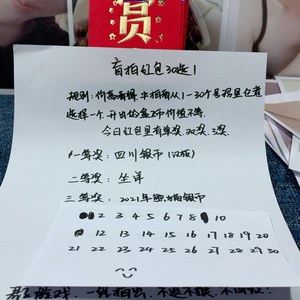 赏
盲拍红包30选1
规则:价高者得,中拍者从1-30个号码里任意
选择一个,开出的金币价值不等.
今日红包里有单奖,双奖,3奖.
一等奖: 四川银币(汉版)
二等奖: 生洋
三等奖: 2021年熊猫银币
2 3 4 5 6 7 8 10
12 13 14 15 16 17 18 19 20
21 22 23 24 25 26 27 28 29 30
一经拍出,不退不换,不